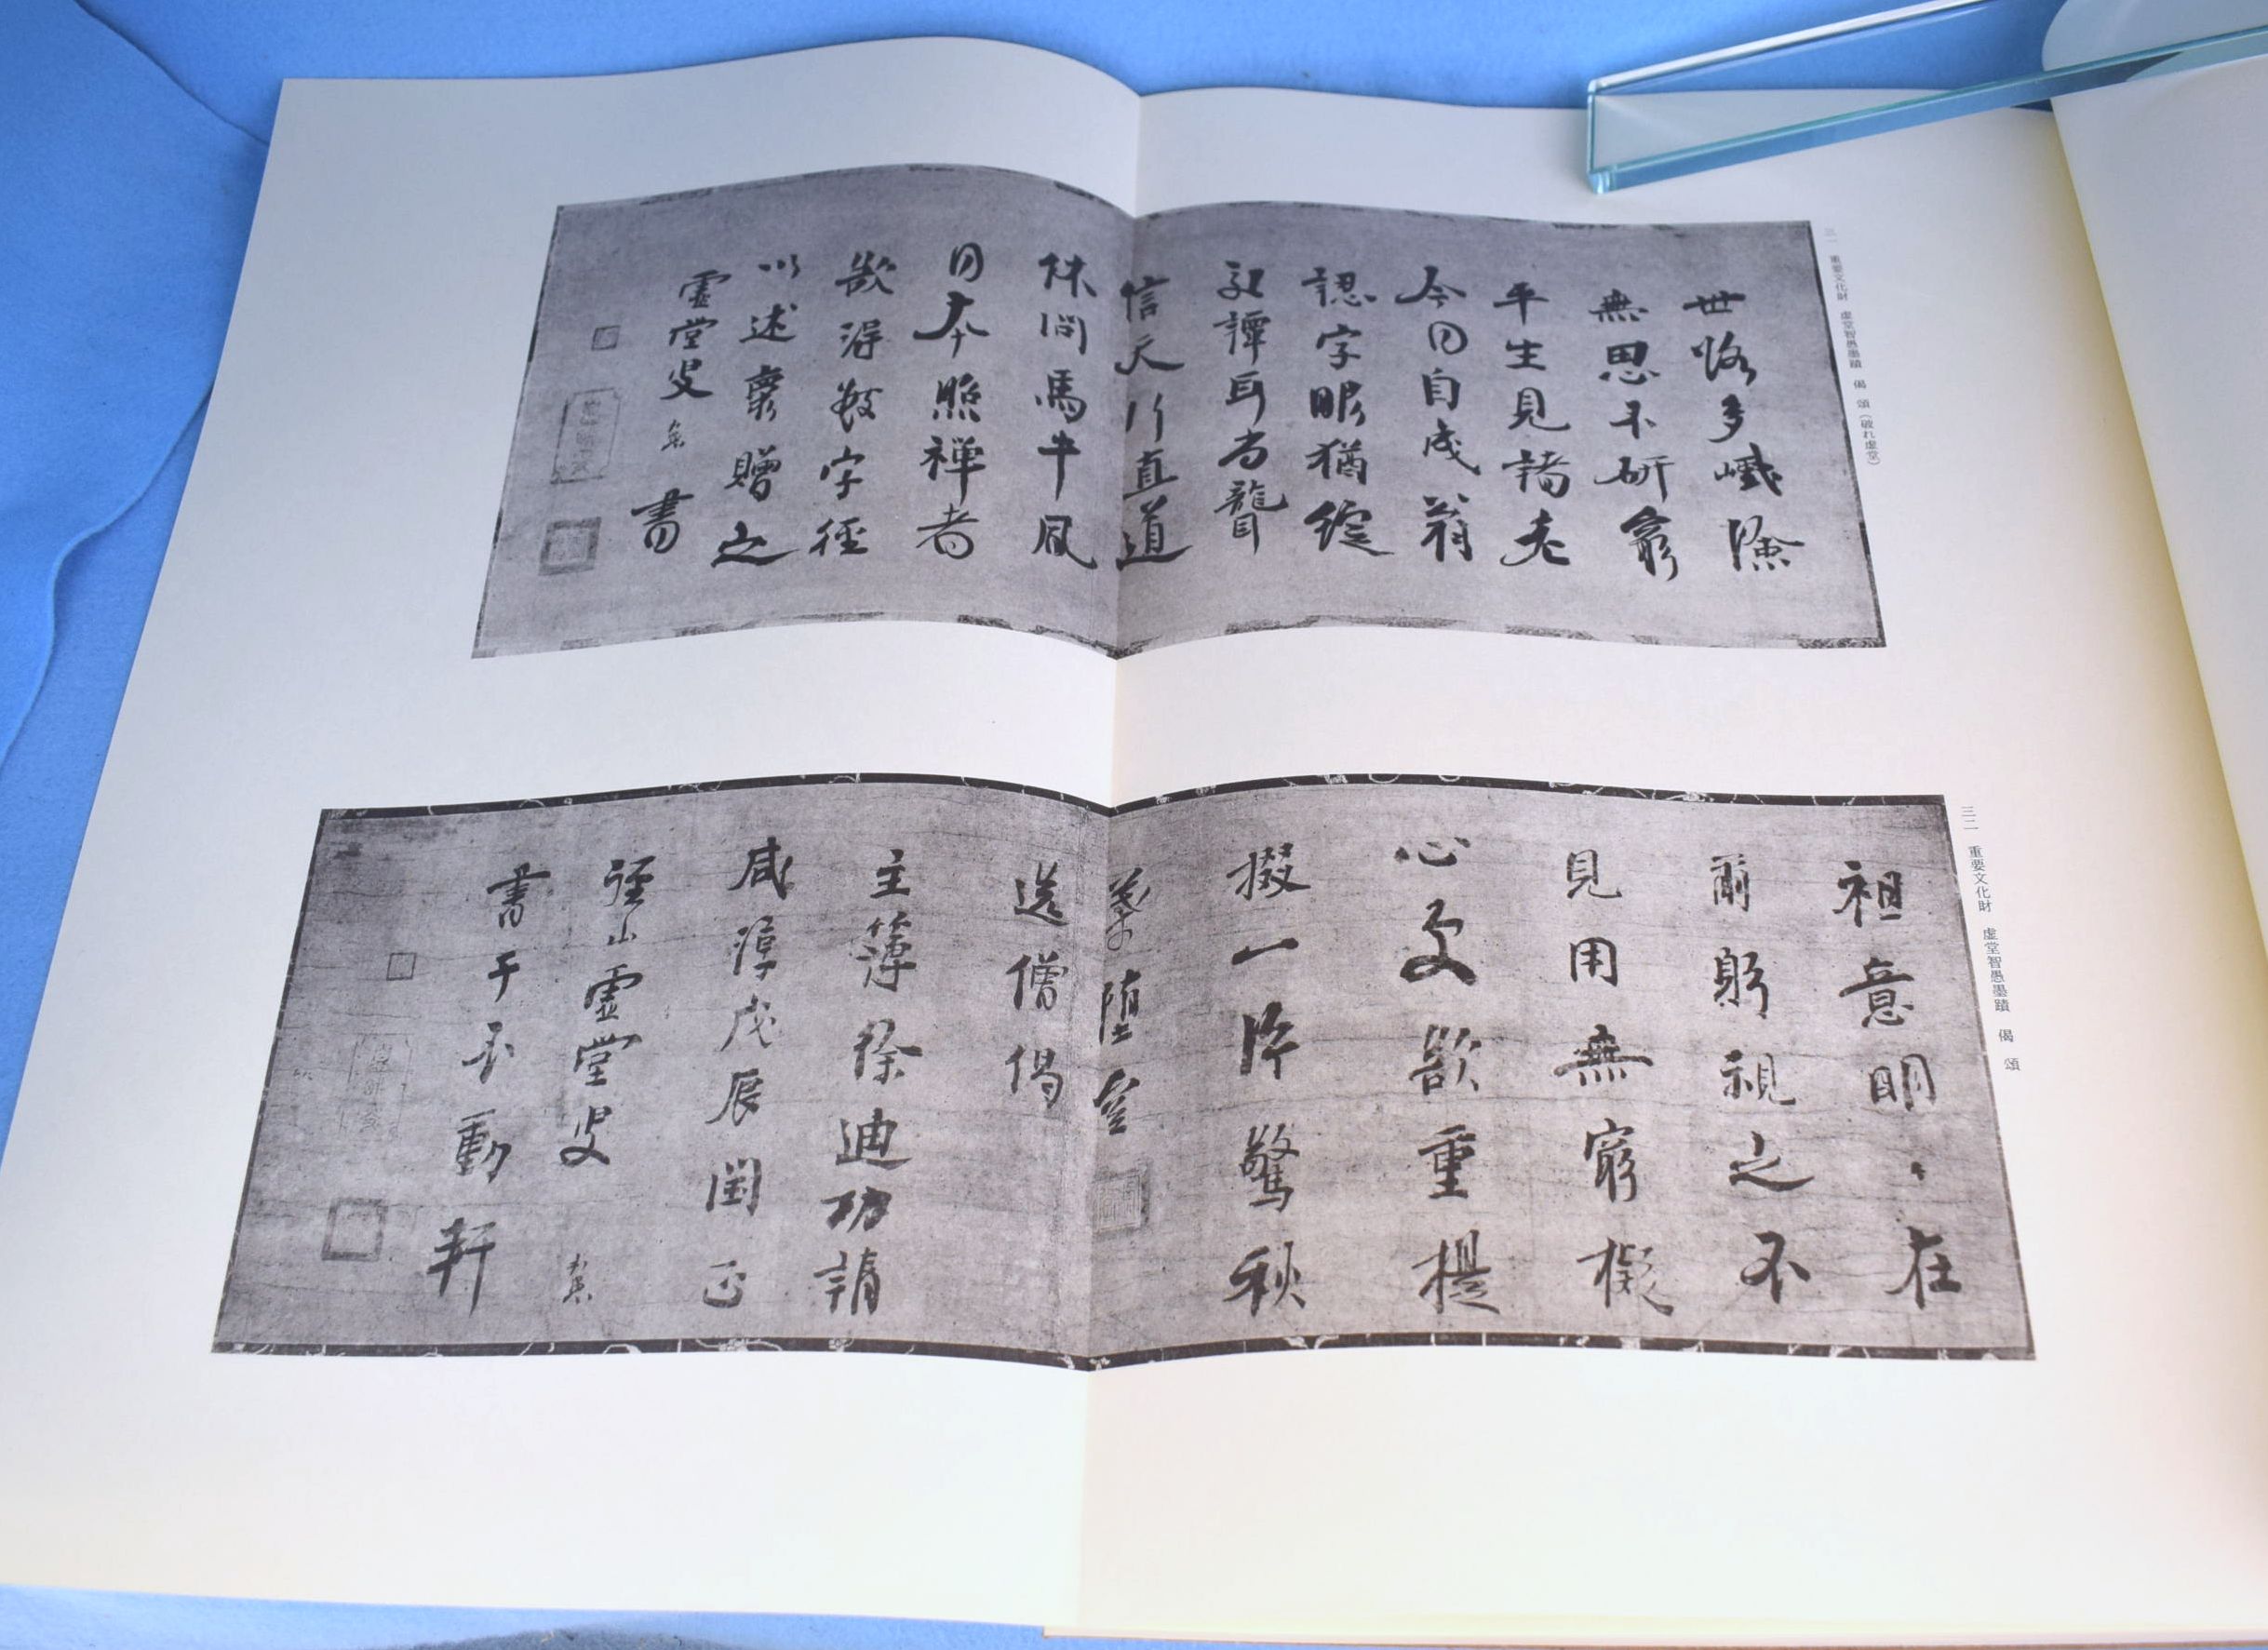 三一 重要文化財 虚堂智愚墨蹟 偈 頌(破れ虚堂)
世路多巇嶮
無思不研窮
平生見諸老
今日自成翁
認字眼猶綻
耳尚聾
信天行直道
休問馬牛風
日本照禅者
欲得数字径
以述懐贈之
虚堂叟 書
三二 重要文化財 虚堂智愚墨蹟 偈 頌
祖意明々在
爾躬視之不
見用無窮擬
心更欲重提
掇一片驚秋
葉墮空
送僧偈
主簿徐迪功請
咸淳戊辰閏正
径山虚堂叟
書于不動軒